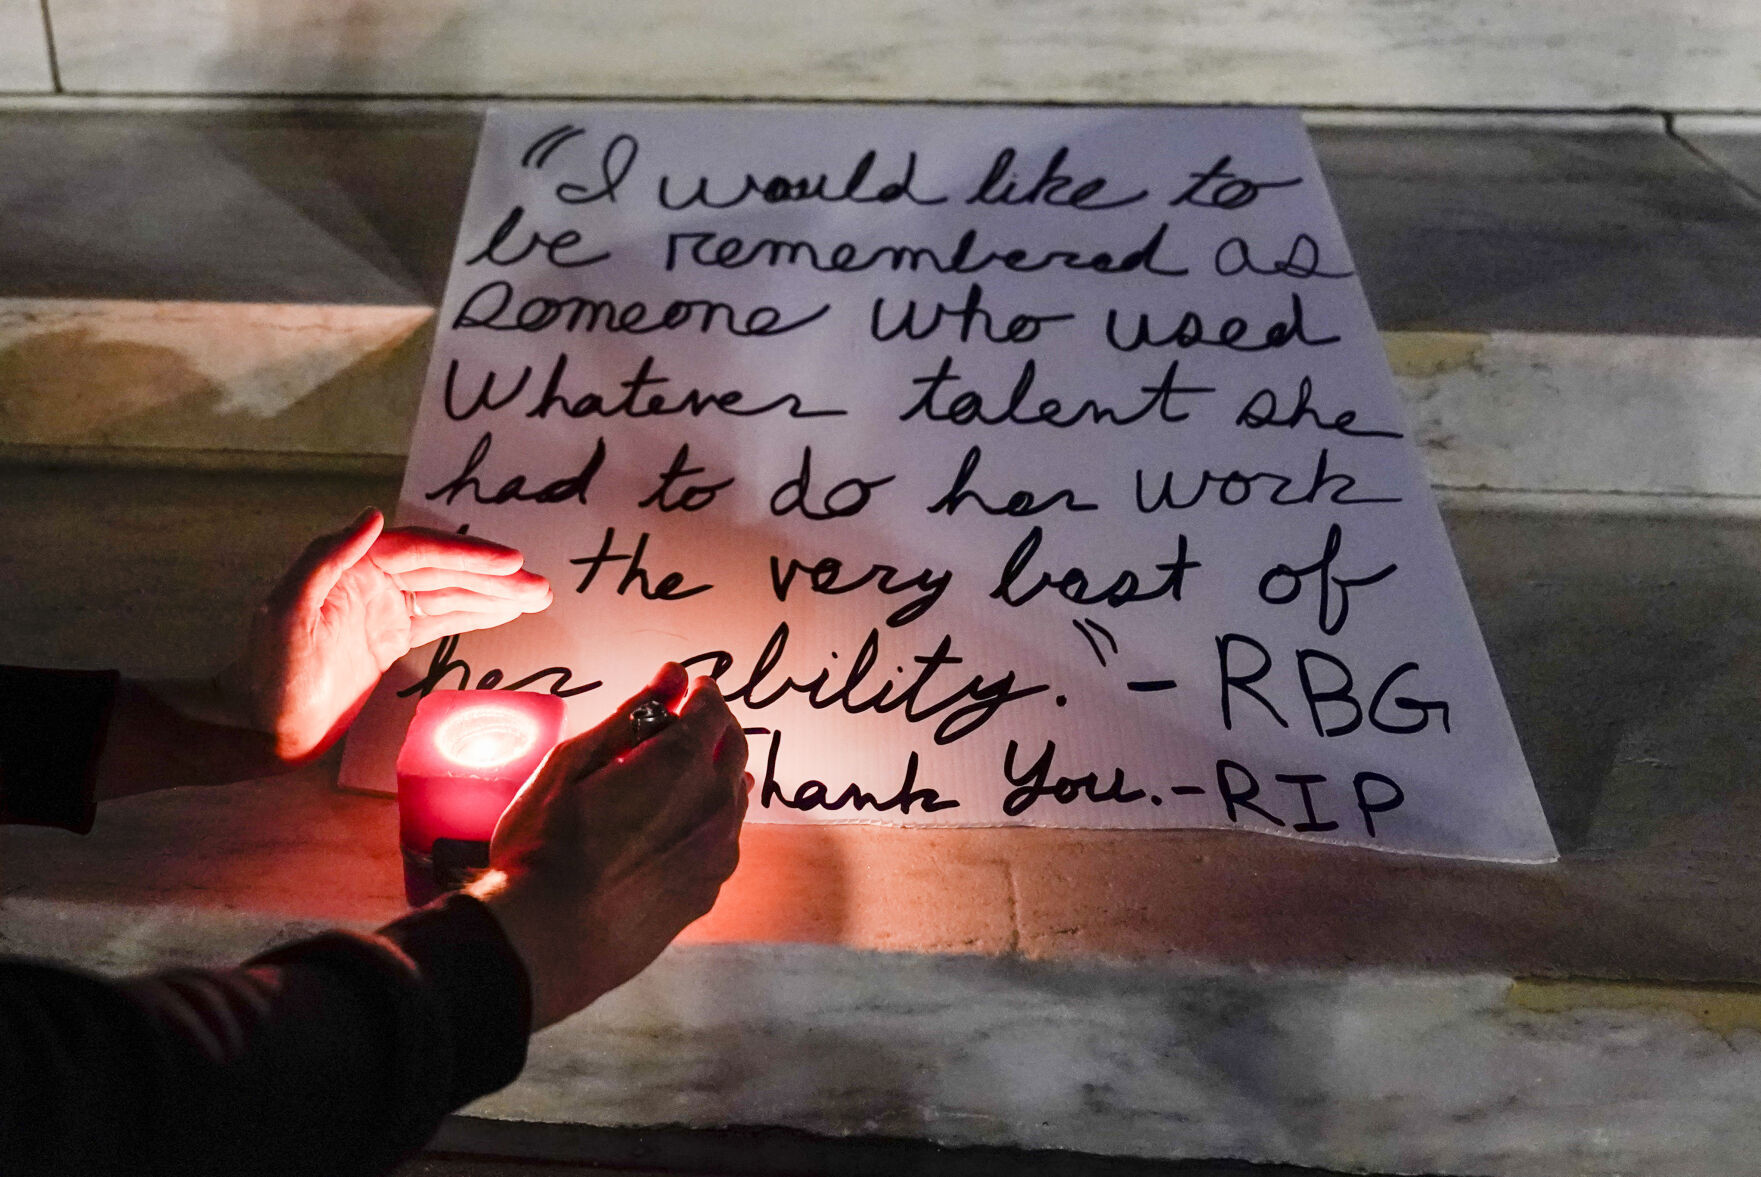 "I would like to
be remembered as
someone who used
whatever talent she
had to do her work
the very best of
her ability." - RBG
Thank You. - RIP